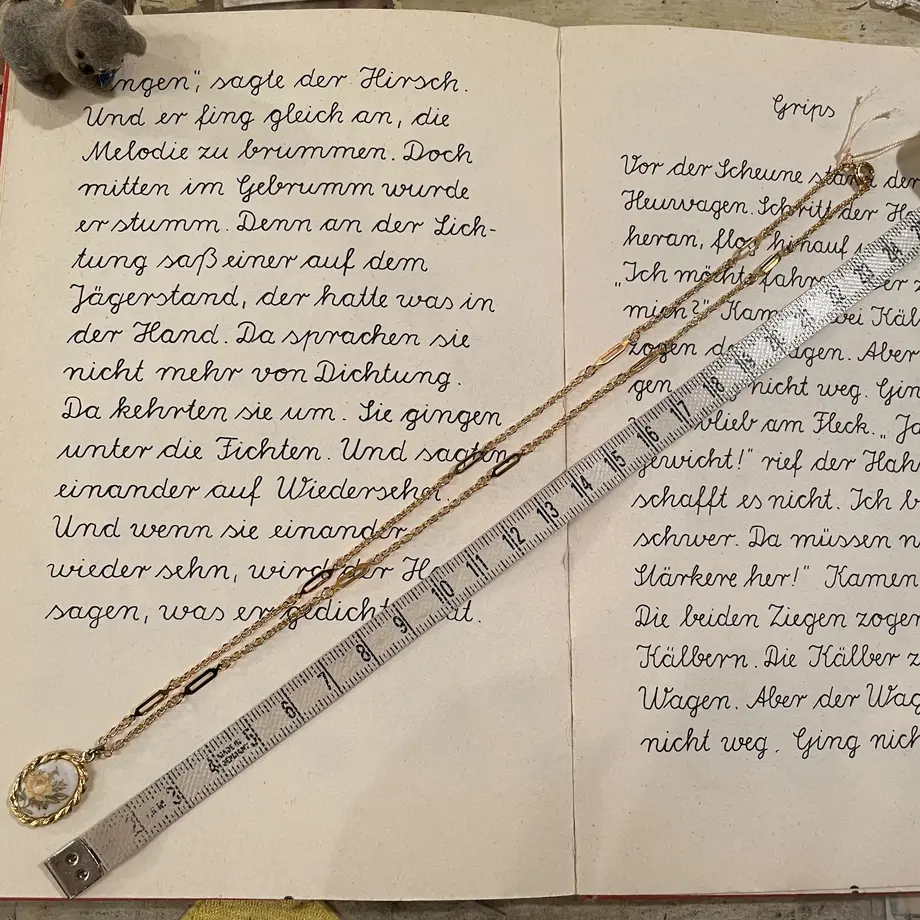 ngen", sagte der Hirsch.
Und er fing gleich an, die
Melodie zu brummen. Doch
mitten im Gebrumm wurde
er stumm. Denn an der Lich-
tung saß einer auf dem
Jägerstand, der hatte was in
der Hand. Da sprachen sie
nicht mehr von Dichtung.
Da kehrten sie um. Sie gingen
unter die Fichten. Und sagten
einander auf Wiedersehn.
Und wenn sie einander
wieder sehn, wird der H
sagen, was er gedicht t.
Grips
Vor der Scheune stand der
Heuwagen. Schritt der H
heran, flog hinauf
„Ich möchte fahr er z
mich?" Kam ei Käl
zogen d agen. Aber
gen nicht weg. Gin
blieb am Fleck. „Ja
gewicht!" rief der Hah
schafft es nicht. Ich b
schwer. Da müssen n
Stärkere her!" Kamen
Die beiden Ziegen zogen
Kälbern. Die Kälber z
Wagen. Aber der Wag
nicht weg. Ging nich
3
4
5
6
7
8
9
10
11
12
13
14
15
16
17
18
19
21
22
23
24